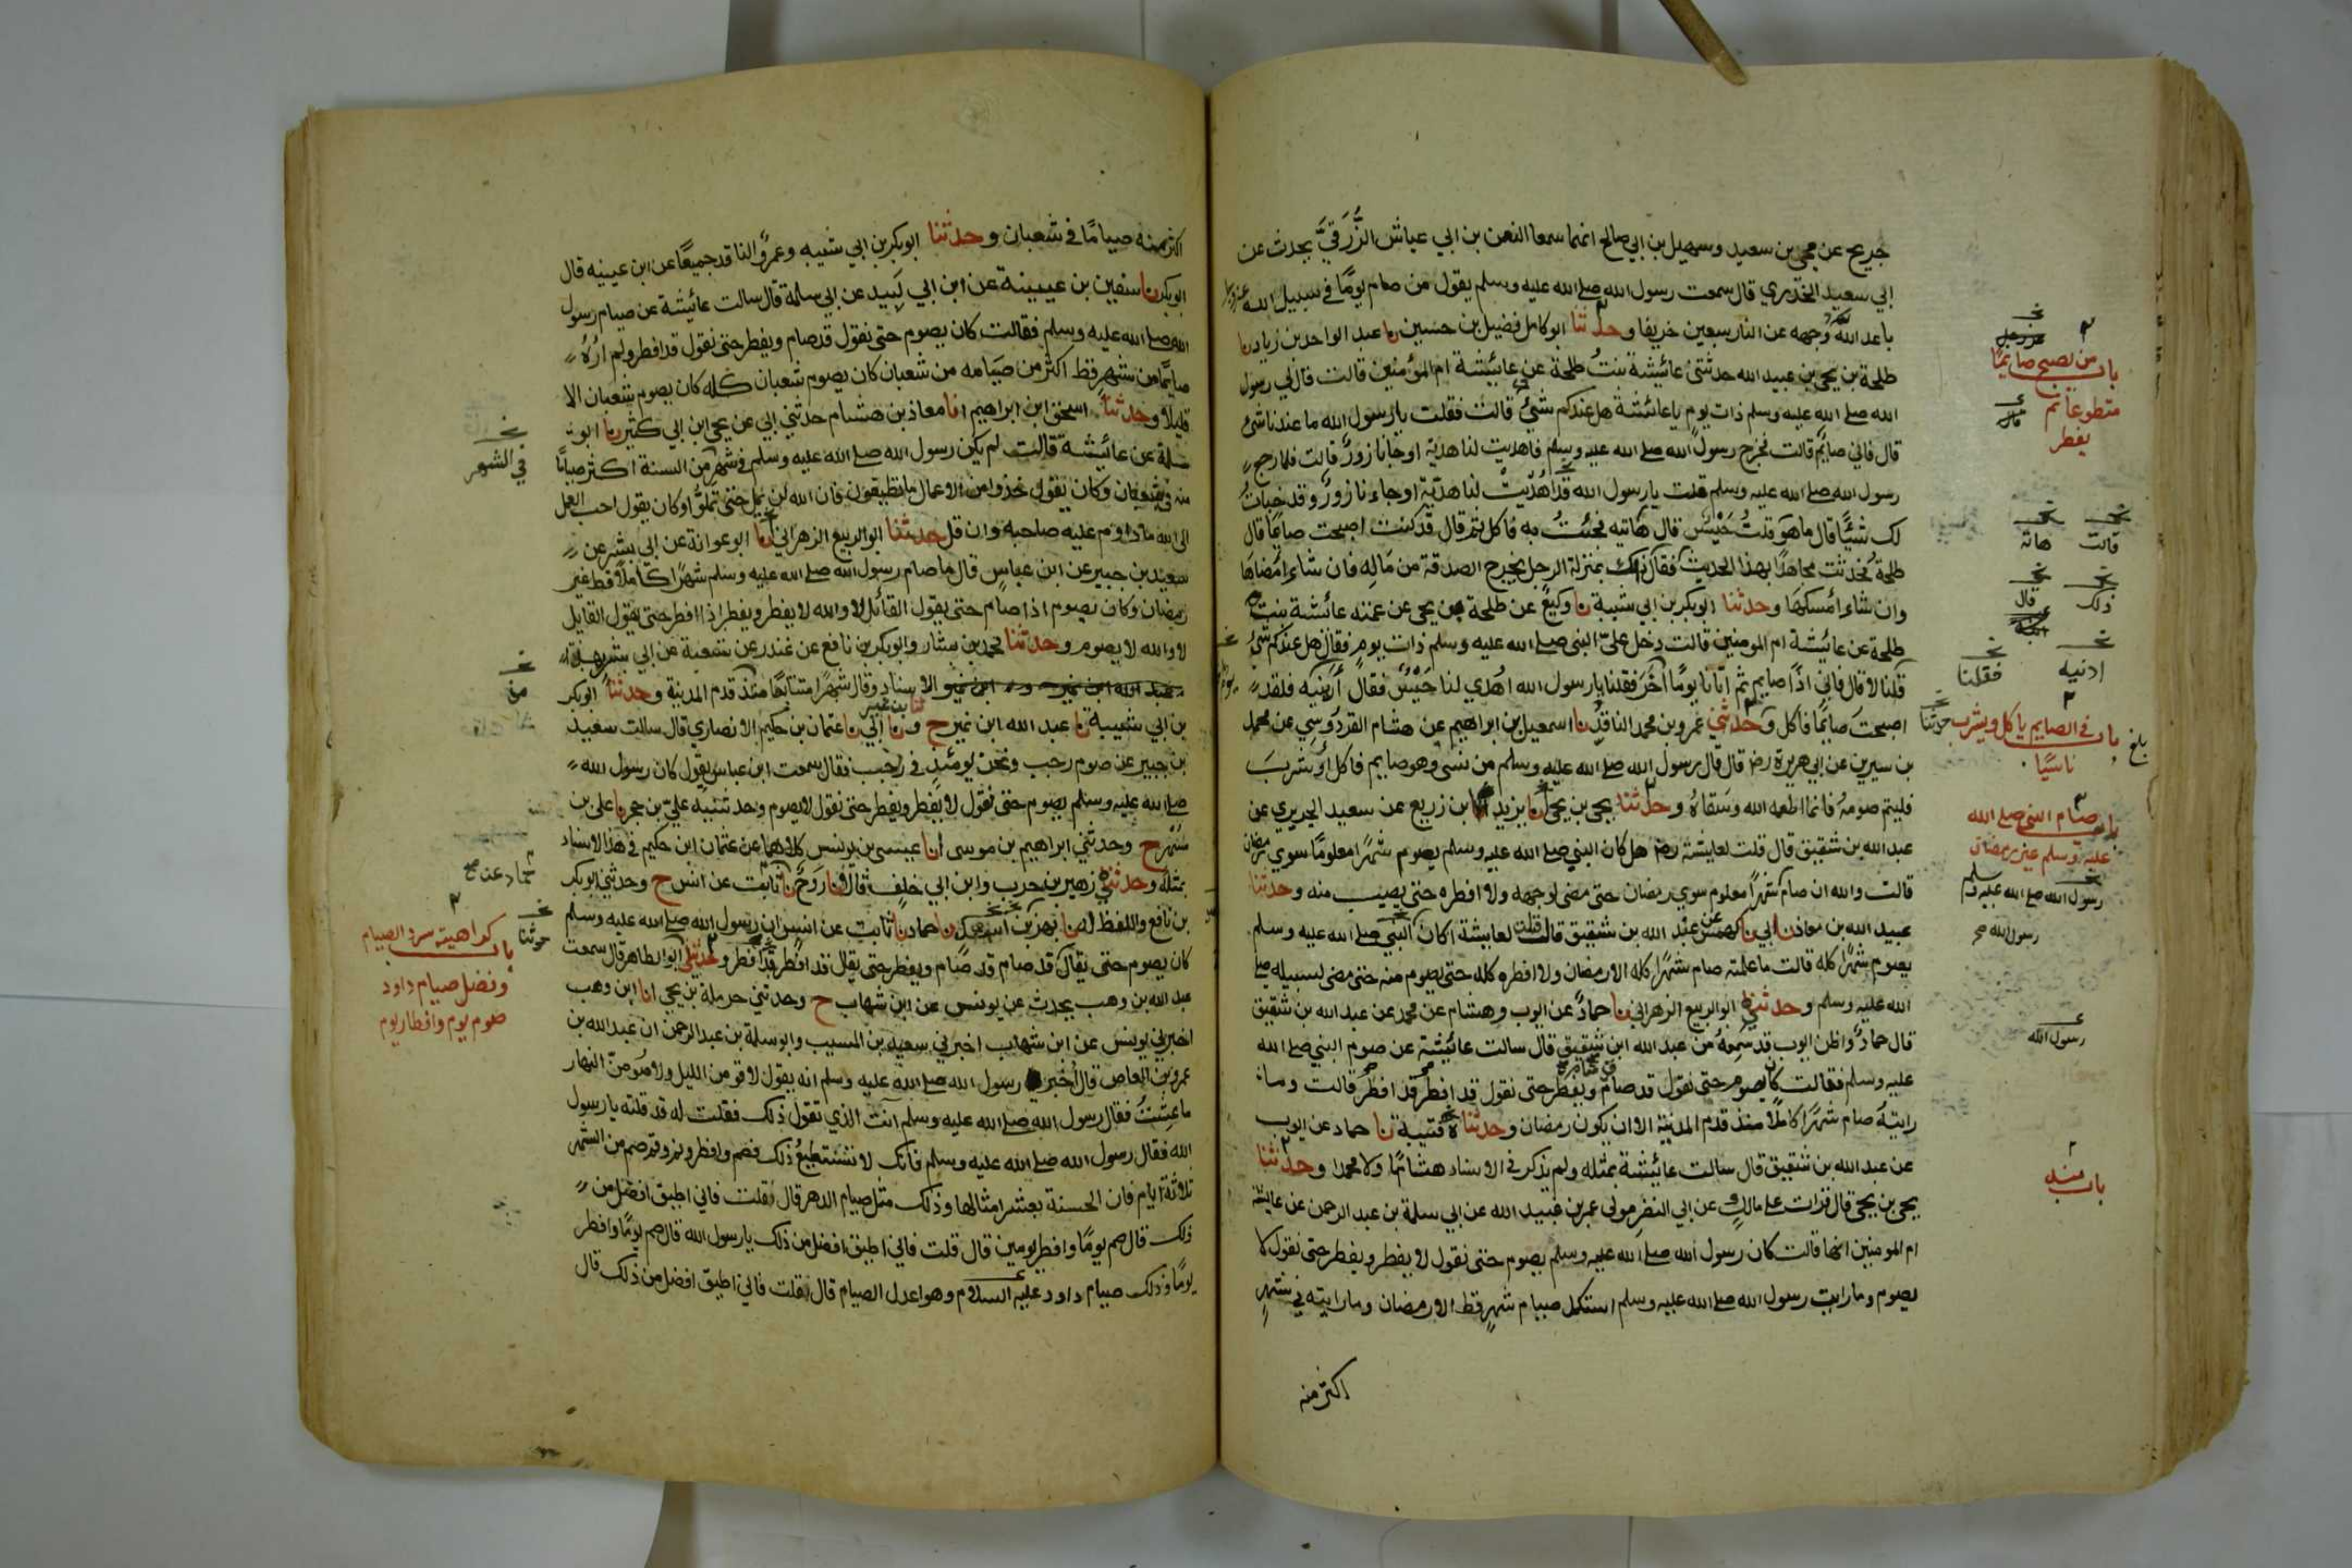 جريج عن يحيى بن سعيد وسهيل بن ابي صالح انهما سمعا النعمن بن ابي عياش الزُّرَقيَّ يحدث عن
ابي سعيد الخدري قال سمعت رسول الله صلى الله عليه وسلم يقول من صام يومًا في سبيل الله
باعد الله وجهه عن النار سبعين خريفا وحدثنا ابو كامل فضيل بن حسين نا عبد الواحد بن زياد نا
طلحة بن يحيى بن عبيد الله حدثتني عائشة بنتُ طلحة عن عائشة ام المؤمنين قالت قال لي رسول
الله صلى الله عليه وسلم ذات يوم يا عائشة هل عندكم شيئ قالت فقلت يا رسول الله ما عندنا شئ
قال فاني صايم قالت فخرج رسول الله صلى الله عليه وسلم فاهديت لنا هدية او جانا زورٌ قالت فلما رجع
رسول الله صلى الله عليه وسلم قلت يا رسول الله قد اُهديتْ لنا هديّة او جاءنا زورٌ وقد خبأتُ
لك شيئًا قال ما هو قلتُ حَيْسٌ قال هاتيه فجئتُ به فاكل ثم قال قد كنت اصبحت صايمًا قال
طلحة فحدثت مجاهدًا بهذا الحديث فقال ذاك بمنزلة الرجل يخرج الصدقة من مَالِه فان شاء امْضاهَا
وان شاء امْسكهَا وحدثنا ابوبكر بن ابي شيبة نا وكيعٌ عن طلحة بن يحيى عن عمته عائشة بنت
طلحة عن عائشة ام المومنين قالت دخل عليّ النبي صلى الله عليه وسلم ذات يوم فقال هل عندكم شئ
قلنا لا قال فاني اذًا صايم ثم اتانا يومًا آخَر فقلنا يا رسول الله اهْدي لنا حَيْسٌ فقال أَرِنيه فلقد
اصبحتَ صايمًا فاكل وحدثني عمرو بن محمد الناقدُ نا اسمعيل بن ابراهيم عن هشام القردوسي عن محمد
بن سيرين عن ابي هريرة رضه قال قال رسول الله صلى الله عليه وسلم من نسى وهو صايم فاكل اوْ شربَ
فليتم صومهُ فانما اطعمه الله وسَقاهُ وحدثنا يحيى بن يحيى نا يزيد بن زريع عن سعيد الجريري عن
عبد الله بن شقيق قال قلت لعايشة رضها هل كان النبي صلى الله عليه وسلم يصوم شهرًا معلومًا سوى رمضان
قالت والله ان صام شهرًا معلوم سوى رمضان حتى مضى لوجهه ولا افطره حتى يصيب منه وحدثنا
عبيد الله بن معاذ نا ابي نا كهمسٌ عن عبد الله بن شقيق قال قلت لعايشة اكان النبي صلى الله عليه وسلم
يصوم شهرًا كله قالت ما علمته صام شهرًا كله الا رمضان ولا افطره كله حتى يصوم منه حتى مضى لسبيله صلى
الله عليه وسلم وحدثني ابو الربيع الزهراني نا حمادٌ عن ايوب وهشام عن محمد عن عبد الله بن شقيق
قال حمادٌ واظن ايوب قد سمعهُ من عبد الله ابن شقيق قال سالت عائشة عن صوم النبي صلى الله
عليه وسلم فقالت كان يصوم حتى نقول قد صام ويفطر حتى نقول قد افطر قد افطر قالت وما
رايتهُ صام شهرًا كاملًا منذ قدم المدينة الا ان يكون رمضان وحدثنا قتيبة نا حماد عن ايوب
عن عبد الله بن شقيق قال سالت عائشة بمثله ولم يذكر في الاسناد هشامًا ولا محمدا وحدثنا
يحيى بن يحيى قال قرات على مالك عن ابي النضر مولى عمر بن عبيد الله عن ابي سلمة بن عبد الرحمن عن عايشة
ام المومنين انها قالت كان رسول الله صلى الله عليه وسلم يصوم حتى نقول لا يفطر ويفطر حتى نقول لا
يصوم وما رايت رسول الله صلى الله عليه وسلم استكمل صيام شهرٍ قط الا رمضان وما رايته في شهرٍ
اكثر منه
عز وجل
باب من يصبح صايمًا
متطوعا ثم
يفطر
قالت هاته
ذلك قال
ادنيه فقلنا
باب في الصايم ياكل ويشرب حدثنا
ناسيًا
بلغ
باب صيام النبي صلى الله
عليه وسلم غير رمضان
رسول الله صلى الله عليه وسلم
رسول الله
رسول الله
باب منه
اكثر منه صيامًا في شعبان وحدثنا ابوبكر بن ابي شيبه وعمرٌو الناقد جميعًا عن ابن عيينه قال
ابوبكر نا سفين بن عيينة عن ابن ابي لَبيد عن ابي سلمة قال سالت عائشة عن صيام رسول
الله صلى الله عليه وسلم فقالت كان يصوم حتى نقول قد صام ويفطر حتى نقول قد افطر ولم ارُهُ
صايمًا من شهرٍ قط اكثر من صيَامه من شعبان كان يصوم شعبان كله كان يصوم شعبان الا
قليلًا وحدثنا اسحق ابن ابراهيم انا معاذ بن هشام حدثني ابي عن يحيى ابن ابي كثير نا ابو
سلمة عن عائشة قالت لم يكن رسول الله صلى الله عليه وسلم في شهرٍ من السنة اكثر صيامًا
منه في شعبان وكان يقول خذوا من الاعمال ما تطيقون فان الله لن يملّ حتى تملوّا وكان يقول احب العمل
الى الله ما داوم عليه صاحبه وان قل حدثنا ابو الربيع الزهراني نا ابو عوانة عن ابي بشرٍ عن
سعيد بن جبير عن ابن عباسٍ قال ما صام رسول الله صلى الله عليه وسلم شهرًا كاملًا قط غير
رمضان وكان يصوم اذا صام حتى يقول القائل لا والله لا يفطر ويفطر اذا افطر حتى يقول القايل
لا والله لا يصوم وحدثنا محمد بن بشار وابوبكر بن نافع عن غندر عن شعبة عن ابي بشر بهذا
الاسناد وقال شهرًا متتابعًا منذ قدم المدينة وحدثنا ابوبكر
بن ابي شيبة نا عبد الله ابن نمير ح ونا ابن نمير نا ابي نا عثمان بن حكيم الانصاري قال سالت سعيد
بن جبير عن صوم رجب ونحن يومئذٍ في رجب فقال سمعت ابن عباس يقول كان رسول الله
صلى الله عليه وسلم يصوم حتى نقول لا يفطر ويفطر حتى نقول لا يصوم وحدثنيه عليّ بن حجر نا علي بن
مسْهر ح وحدثني ابراهيم بن موسى انا عيسى بن يونس كلاهما عن عثمان ابن حكيم في هذا الاسناد
بمثله وحدثني زهير بن حرب وابن ابي خلف قالا نا رَوحٌ نا ثابت عن انس ح وحدثني ابوبكر
بن نافع واللفظ له نا بهز نا حماد نا ثابت عن انس ان رسول الله صلى الله عليه وسلم
كان يصوم حتى يقال قد صام قد صام ويفطر حتى يقال قد افطر قد افطر وحدثني ابو الطاهر قال سمعت
عبد الله بن وهب يحدث عن يونس عن ابن شهاب ح وحدثني حرملة بن يحيى انا ابن وهب
اخبرني يونس عن ابن شهاب اخبرني سعيد بن المسيب وابو سلمة بن عبد الرحمن ان عبد الله بن
عمرو بن العاص قال أخبر رسول الله صلى الله عليه وسلم انه يقول لاقومن الليل ولاصُومنّ النهار
ما عِشتُ فقال رسول الله صلى الله عليه وسلم آنت الذي تقول ذلك فقلت له قد قلته يا رسول
الله فقال رسول الله صلى الله عليه وسلم فانك لا تستطيعُ ذلك فصم وافطر ونم وقم صم من الشهر
ثلاثة ايام فان الحسنة بعشر امثالها وذلك مثل صيام الدهر قال فقلت فاني اطيق افضل من
ذلك قال صم يومًا وافطر يومين قال قلت فاني اطيق افضل من ذلك يا رسول الله قال صم يومًا وافطر
يومًا وذلك صيام داود عليه السلام وهو اعدل الصيام قال فقلت فاني اطيق افضل من ذلك قال
في الشهر
من
حماد عن
حدثنا
باب كراهية سرد الصيام
وفضل صيام داود
صوم يوم وافطار يوم